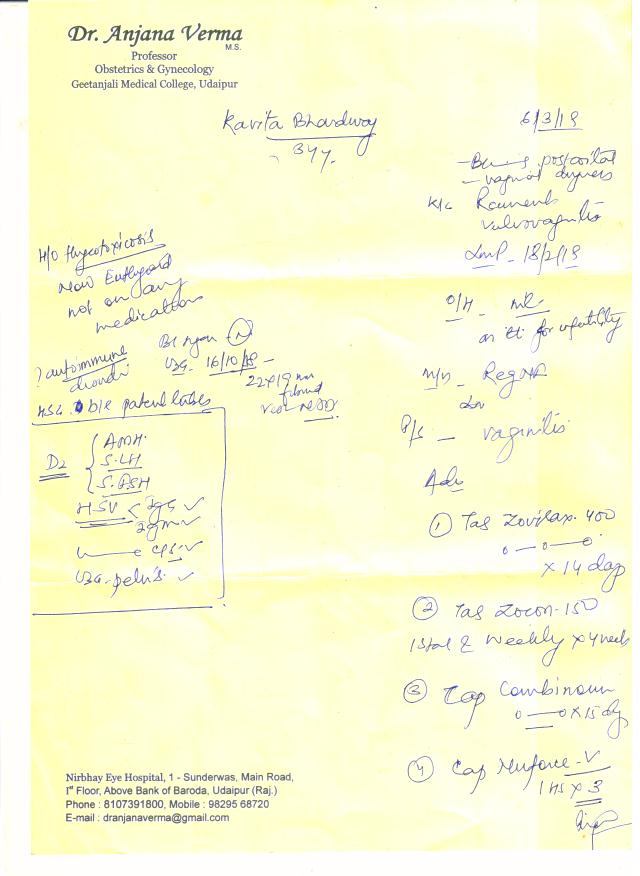 Dr. Anjana Verma
M.S.
Professor
Obstetrics & Gynecology
Geetanjali Medical College, Udaipur
Kavita Bhardwaj
34y.
6/3/19
postcoital
- vaginal dryness
K/C Recurrent
vulvovaginitis
LMP - 18/2/19
H/O thyrotoxicosis
Now Euthyroid
not on any
medication
O/H - 
for infertility
? autoimmune
(N)
USG - 16/10/18 -
22x19 mm
M/H - Reg
P/S - vaginitis
HSG b/e patent tubes
D2
AMH.
S. LH
S. FSH
HSV < IgG ✓
IgM ✓
USG - pelvis ✓
Adv
① Tab Zovirax 400
o — o — o
x 14 days
② Tab Zocon - 150
1 stat & weekly x 4 weeks
③ Cap
o — o x 15 days
④ Cap - V
1 HS x 3
Nirbhay Eye Hospital, 1 - Sunderwas, Main Road,
Ist Floor, Above Bank of Baroda, Udaipur (Raj.)
Phone : 8107391800, Mobile : 98295 68720
E-mail : dranjanaverma@gmail.com